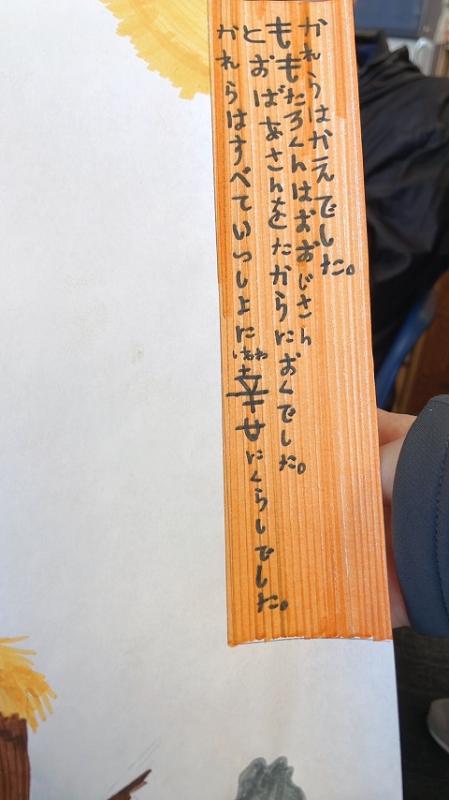 かれらはかえでした。
ももたろくんはおおじさん
とおばあさんをたからにおくでした。
かれらはすべていつしよに幸せにくらしでした。